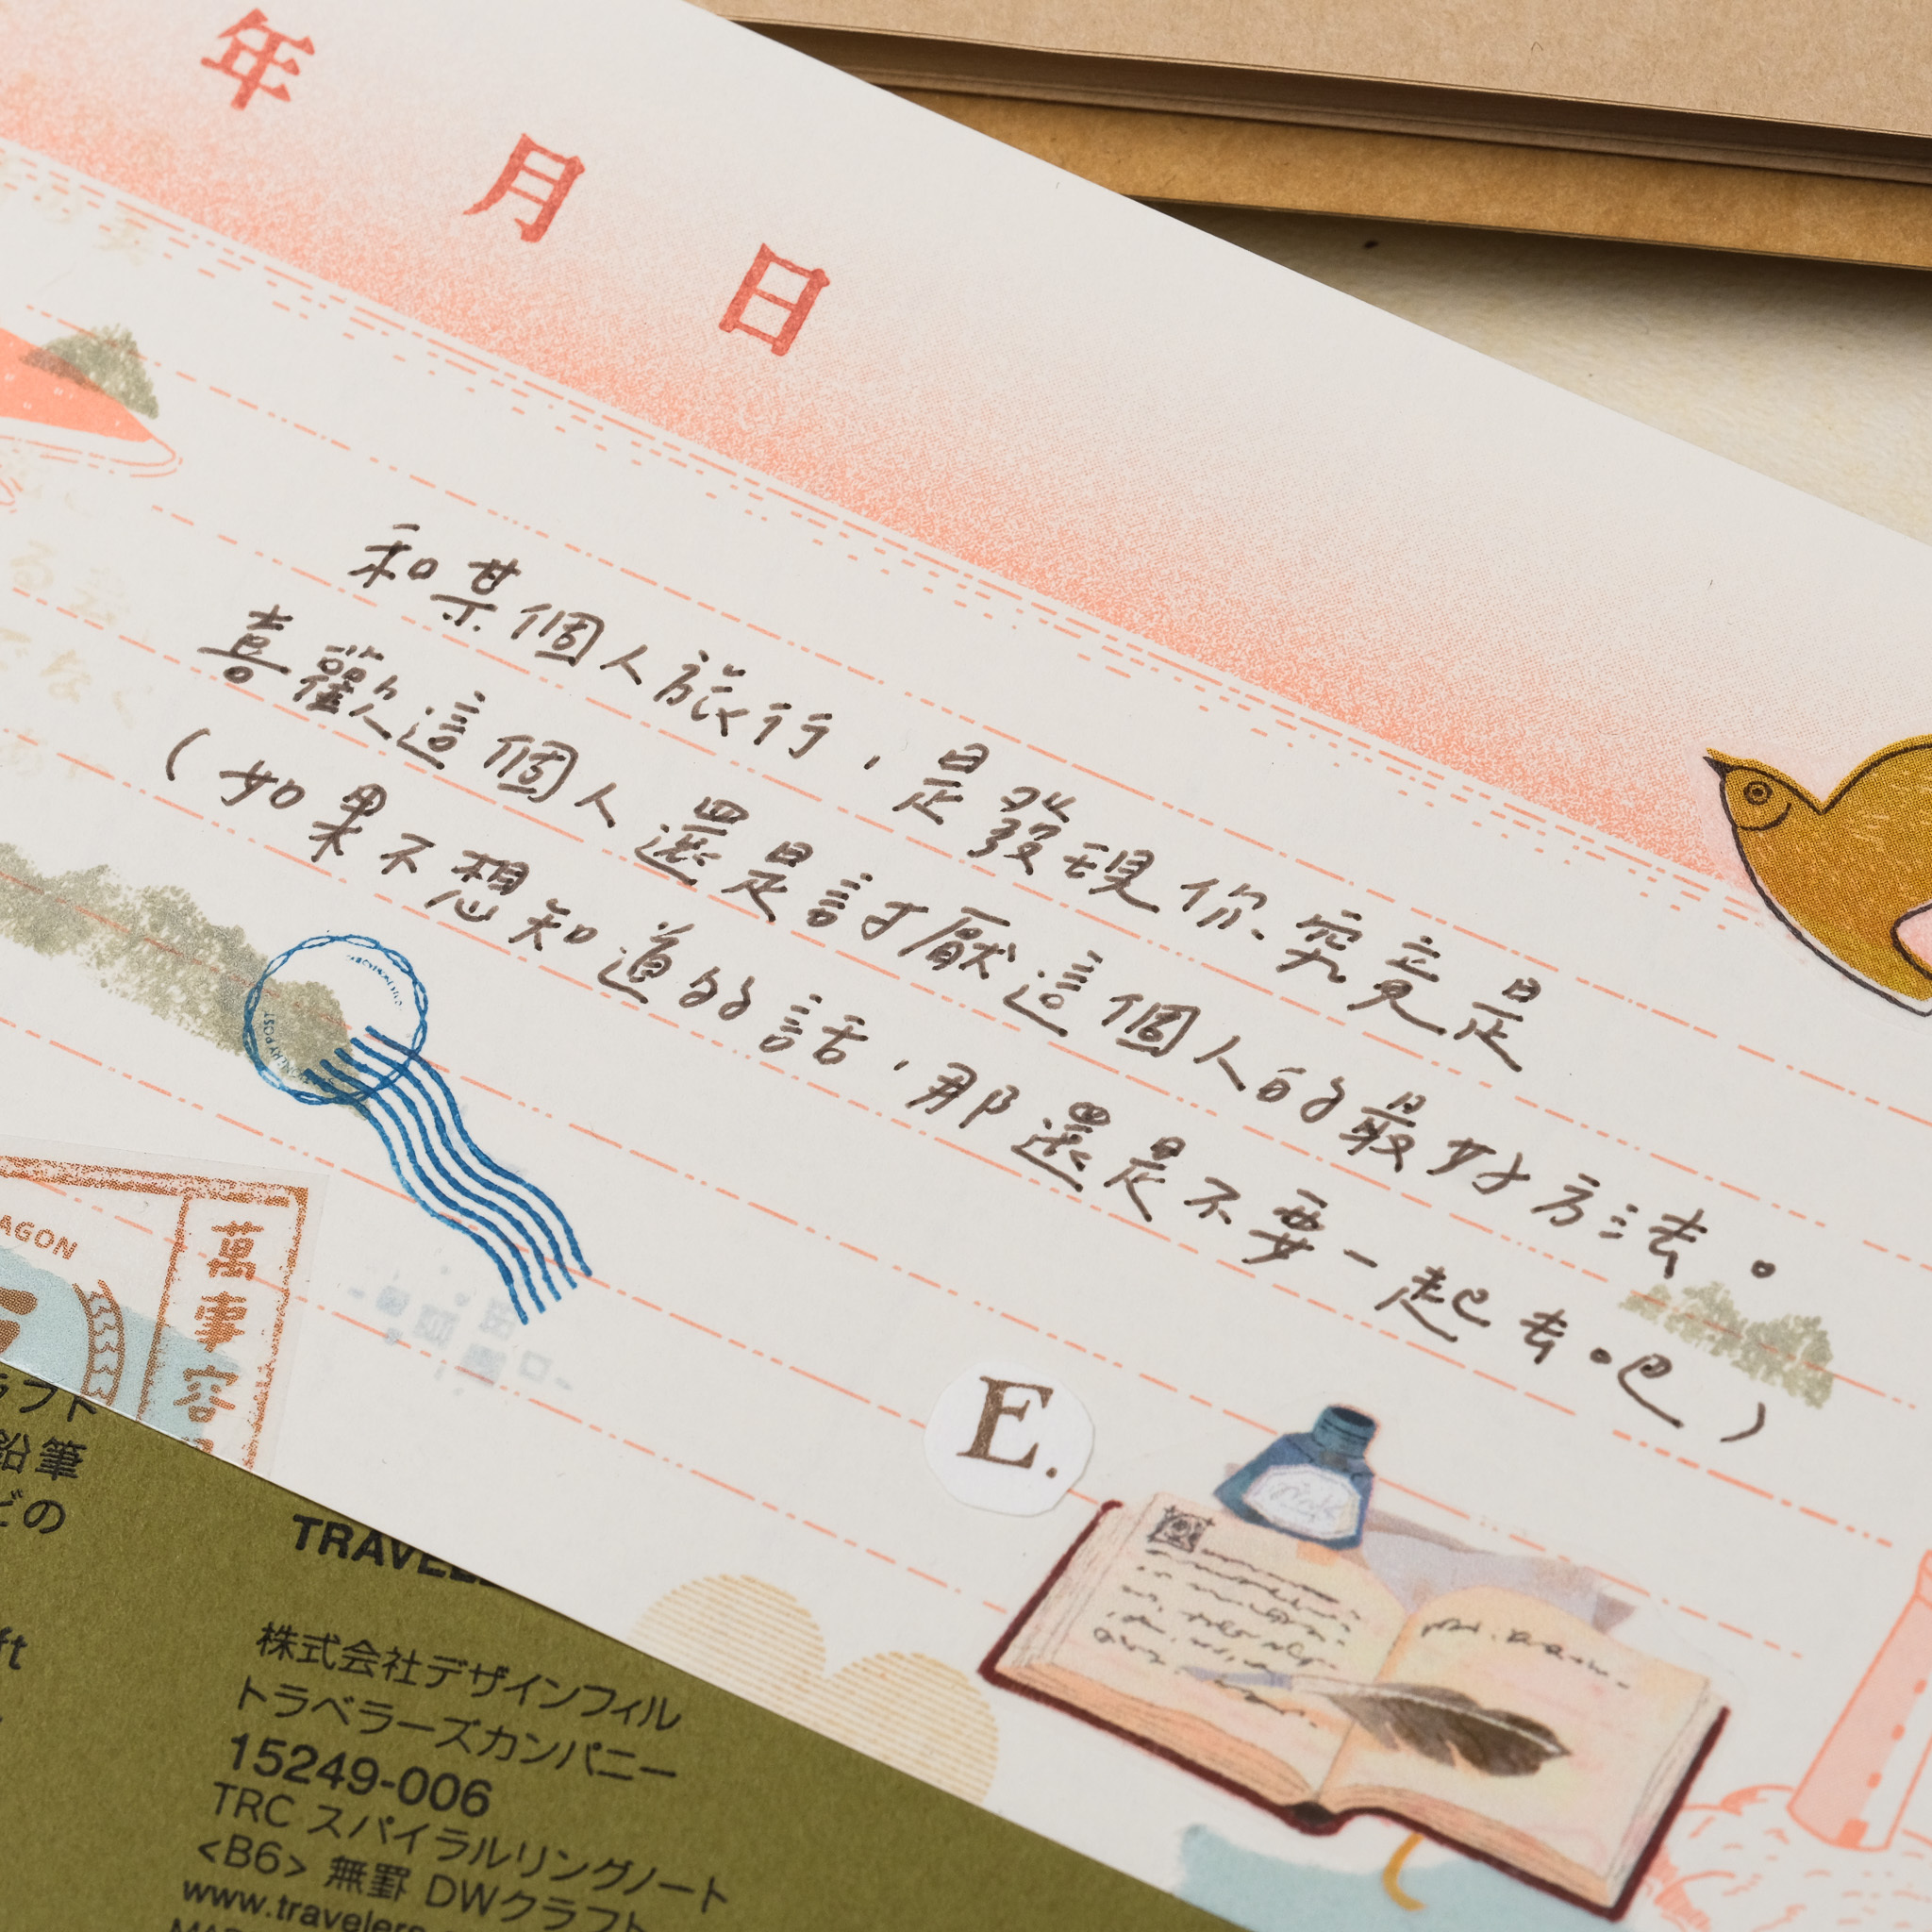 年 月 日
和某個人旅行，是發現你究竟是
喜歡這個人還是討厭這個人的最好方法。
（如果不想知道的話，那還是不要一起去吧）
AGON
萬事容
E.
ink
ラフト
鉛筆
どの
ft
TRAVEL
株式会社デザインフィル
トラベラーズカンパニー
15249-006
TRC スパイラルリングノート
<B6> 無罫 DWクラフト
www.travelers